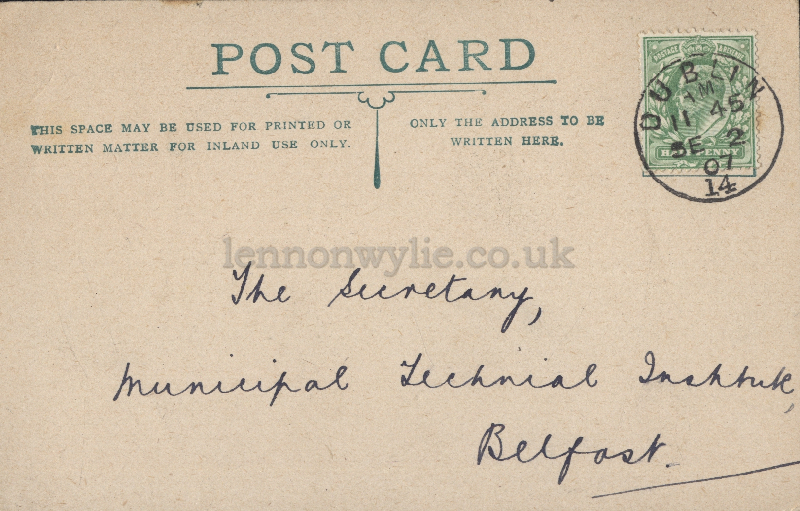 POST CARD
THIS SPACE MAY BE USED FOR PRINTED OR
WRITTEN MATTER FOR INLAND USE ONLY.
ONLY THE ADDRESS TO BE
WRITTEN HERE.
POSTAGE
HALFPENNY
DUBLIN
AM
11 45
SE 2
07
14
lennonwylie.co.uk
The Secretary,
Municipal Technical Institute,
Belfast.